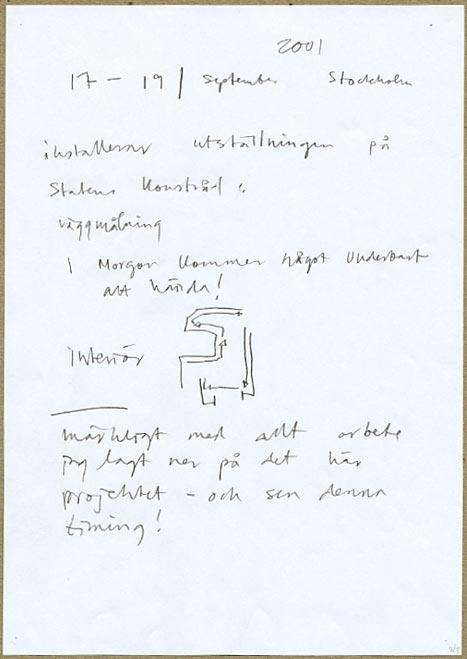 2001
17 – 19 / September Stockholm
installerar utställningen på
Statens Konstråd:
väggmålning
I Morgon kommer något underbart
att hända!
interiör
märkligt med allt arbete
jag lagt ner på det här
projektet – och sen denna
timing!